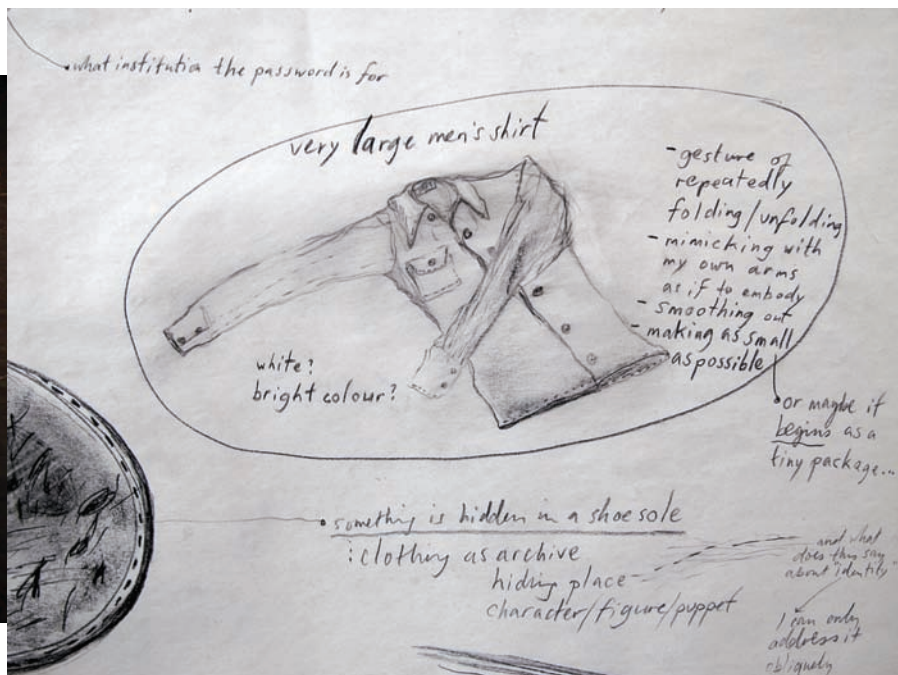 what institution the password is for
very large men's shirt
- gesture of
repeatedly
folding/unfolding
- mimicking with
my own arms
as if to embody
- smoothing out
- making as small
as possible
white?
bright colour?
or maybe if
begins as a
tiny package...
something is hidden in a shoe sole
: clothing as archive
hiding place
character/figure/puppet
and what
does this say
about "identity"
I can only
address it
obliquely